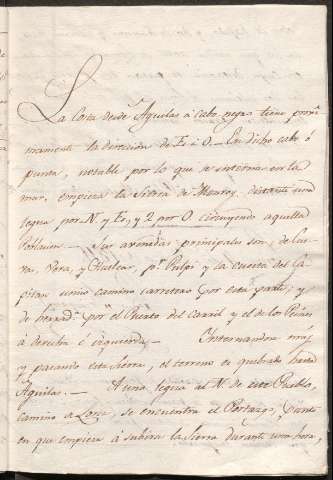 La Costa desde Aguilas á Cabo negro tiene proxi-
mamente la direccion de E. á O. - En dicho cabo ó
punta, notable por lo que se interna en la
mar, empieza la Sierra de Monroy distante una
legua por N. y E., y 2 por O circuyendo aquella
Poblacion - Sus avenidas principales son, de Cue-
va, Vera, y Huelear, pr. Pulpi y la cuesta del Ca-
pitan unico camino carretero por esta parte, y
de por el Puerto del Charil y el de los Peines
á derecha é izquierda. - Internandose mas
y pasando esta sierra, el terreno es quebrado hasta
Aguilas. - A una legua al N. de este Pueblo,
camino a Lorca, se encuentra el Portazgo, punto
en que empieza á subirse la Sierra durante una hora,